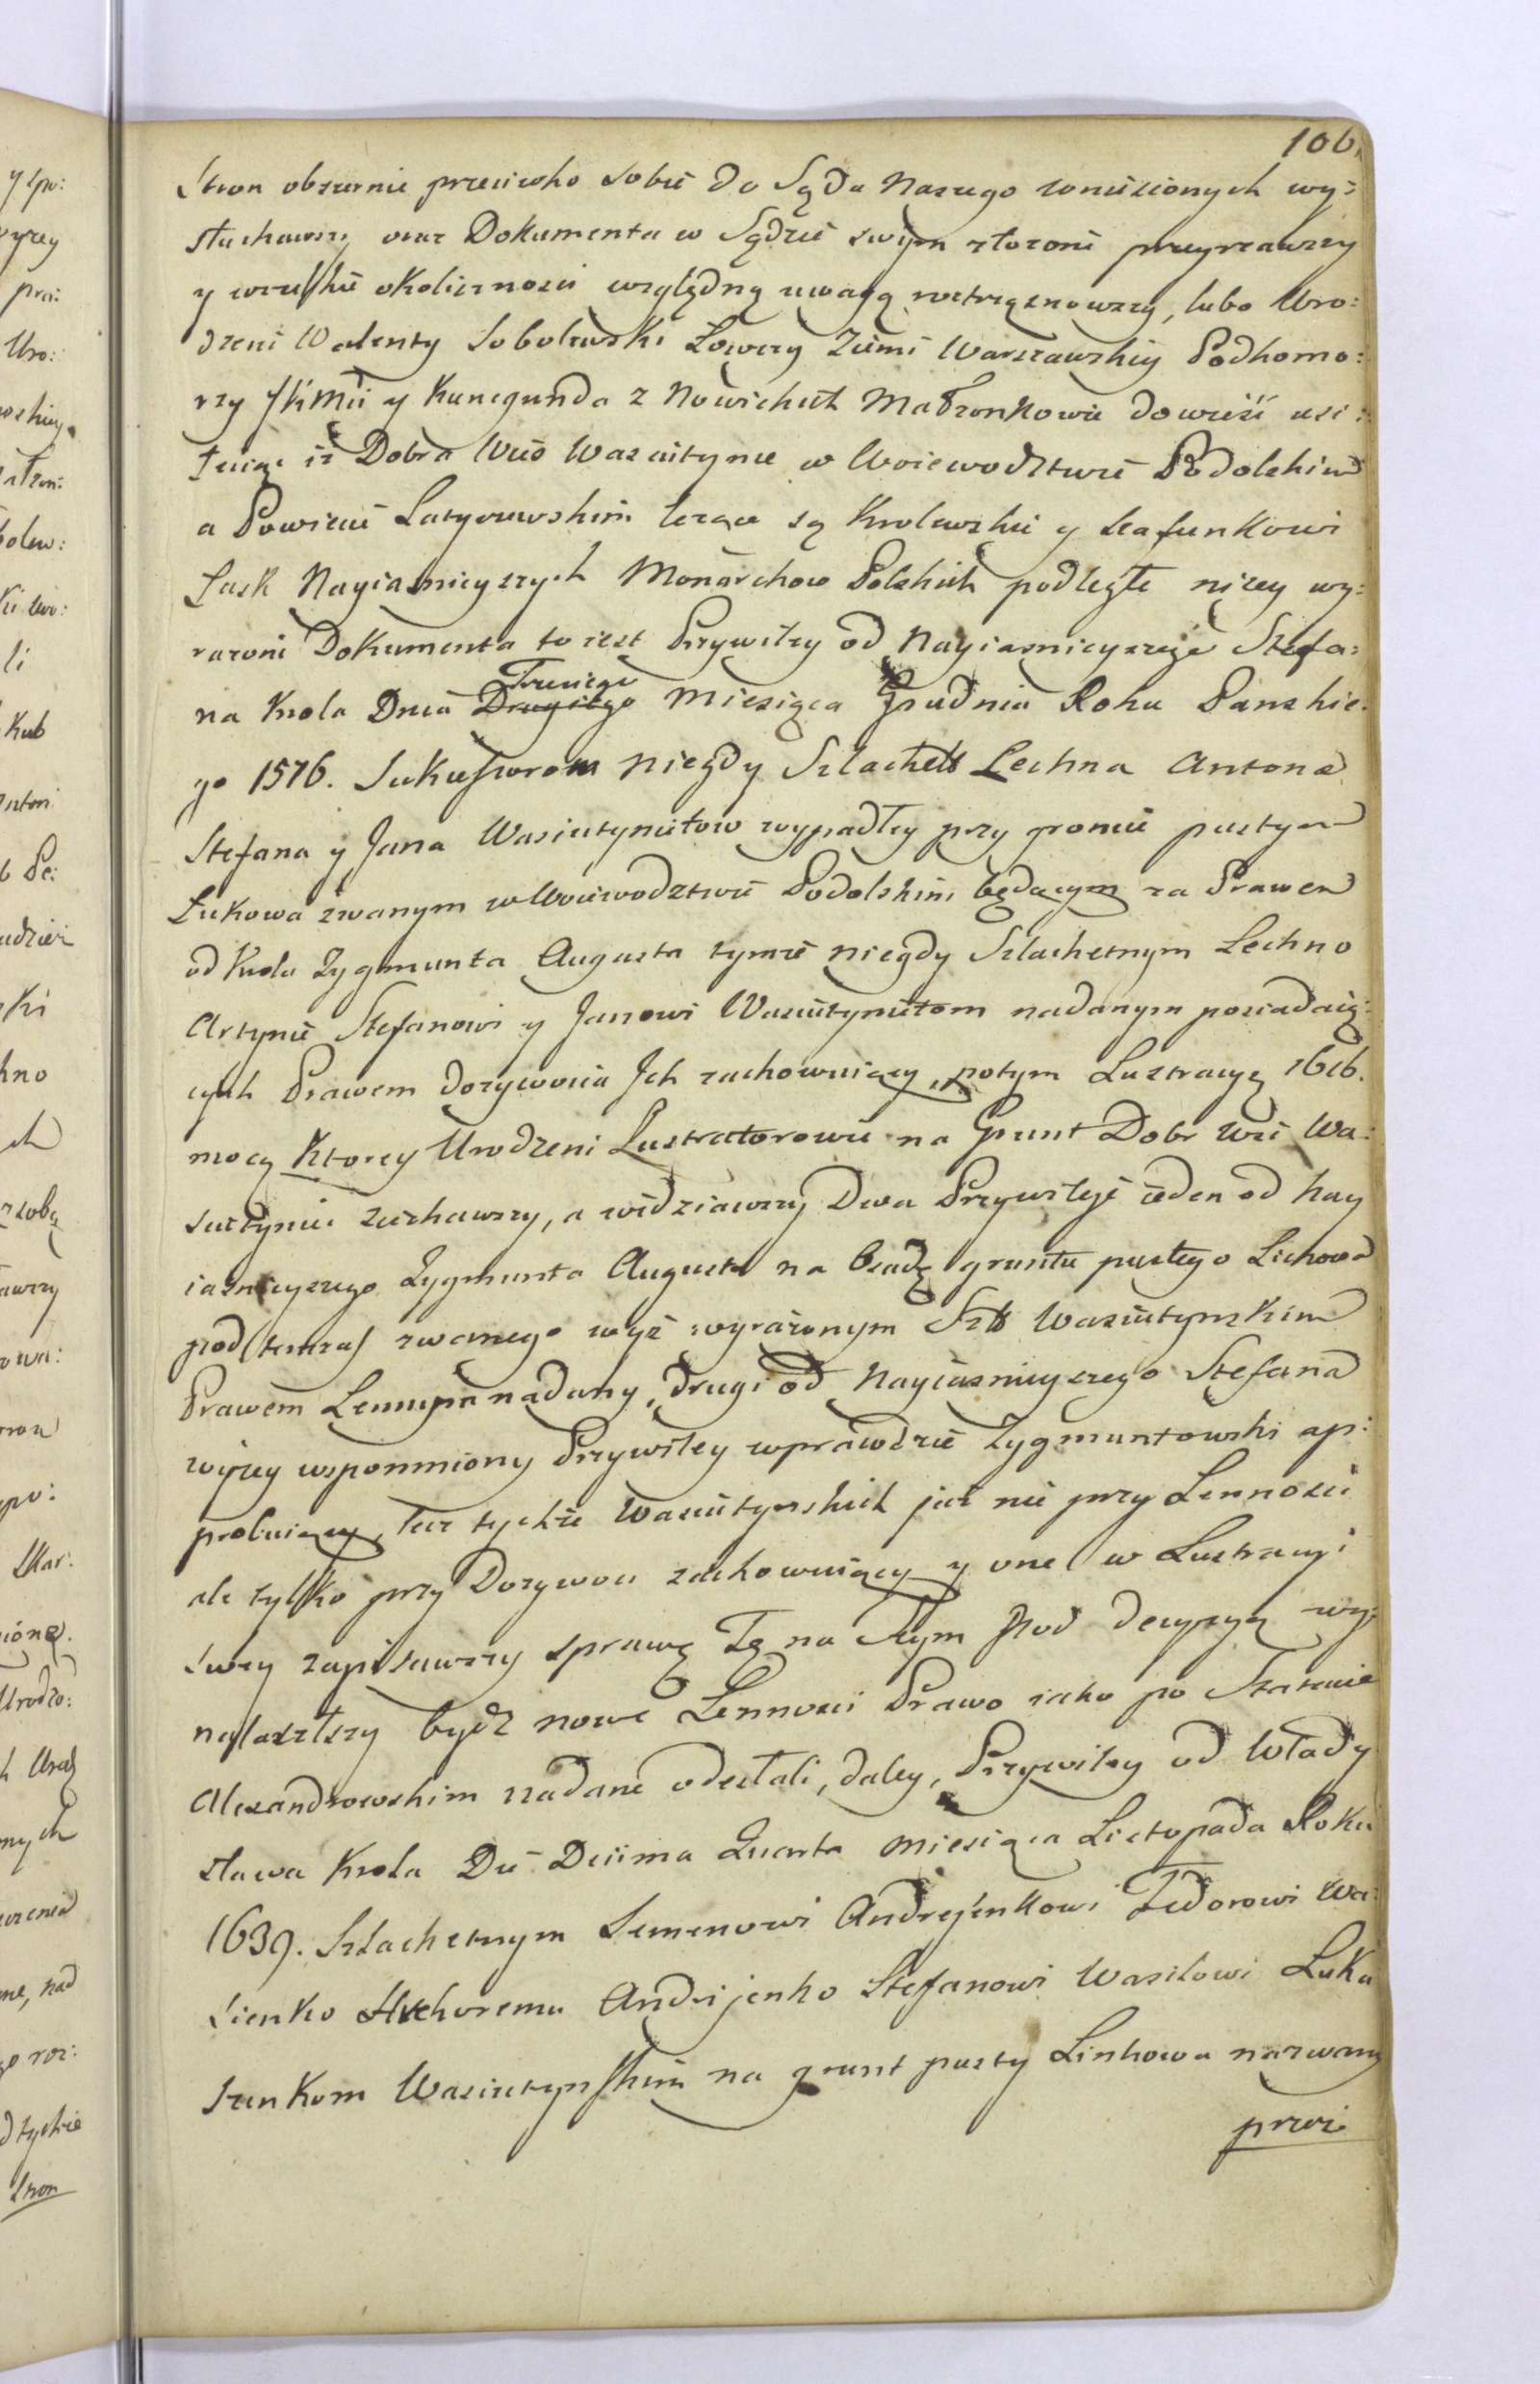 106.
Stron obszernie przeciwko sobie do Sądu Naszego wniesionych wy=
słuchawszy oraz Dokumenta w Sądzie swym złożone przeyrzawszy
y wszelkie okoliczności względną uwagą roztrząsnowszy, lubo Uro:
dzeni Walenty Sobolewski Łowczy Ziemi Warszawskiey Podkomo:
rzy JKMci y Kunegunda z Nowickich Małżonkowie dowieść usi:
łuiąc iż Dobra Wieś Wasiutynce w Woiewodztwie Podolskim
a Powiecie Latyczewskim leżące są Krolewskie y szafunkowi
Łask Nayiasnieyszych Monarchow Polskich podległe niżey wy:
rażone Dokumenta to iest Przywiley od Nayiasnieyszego Stefa:
na Krola Dnia Drugiego Trzeciego Miesiąca Grudnia Roku Panskie:
go 1576. Sukcessorom niegdy Szlachett Lechna Antona
Stefana y Jana Wasiutyńców wypadły przy gronie pustym
Łukowa zwanym w Woiewodztwie Podolskim będącym za Prawem
od Krola Zygmunta Augusta tymże niegdy Szlachetnym Lechno
Artynie Stefanowi y Janowi Wasiutyńcom nadanym posiadaią:
cych Prawem Dożywocia Ich zachowuiący, potym Lustracyą 1616.
mocą Ktorey Urodzeni Lustratorowie na Grunt Dobr Wsi Wa:
siutyniec ziechawszy, a widziawszy Dwa Przywileje ieden od Nay
iasnieyszego Zygmunta Augusta na Osadę gruntu pustego Lichowa
pod teraz zwanego wyż wyrażonym Szltt Wasiutynskim
Prawem Lennym nadany, drugi od Nayiasnieyszego Stefana
wyżey wspomniony Przywiley wprawdzie Zygmuntowski ap:
probuiący, lecz tychże Wasiutynskich już nie przy Lennosci
ale tylko przy Dożywociu zachowuiący y one w Lustracyi
swey zapisawszy sprawę Tę na Seym pod decyzyą wy:
nalazłszy bydź nowe Lennosci Prawo iako po Statucie
Alexandrowskim nadane odesłali, daley, Przywiley od Włady
sława Krola Die Decima Quarta Miesiąca Listopada Roku
1639. Szlachetnym Semenowi Andrejenkowi Fedorowi Wa:
sienko Hrehoremu Andrijenko Stefanowi Wasilowi Luka
szenkom Wasiutynskim na grunt pusty Linkowa nazwany
przez